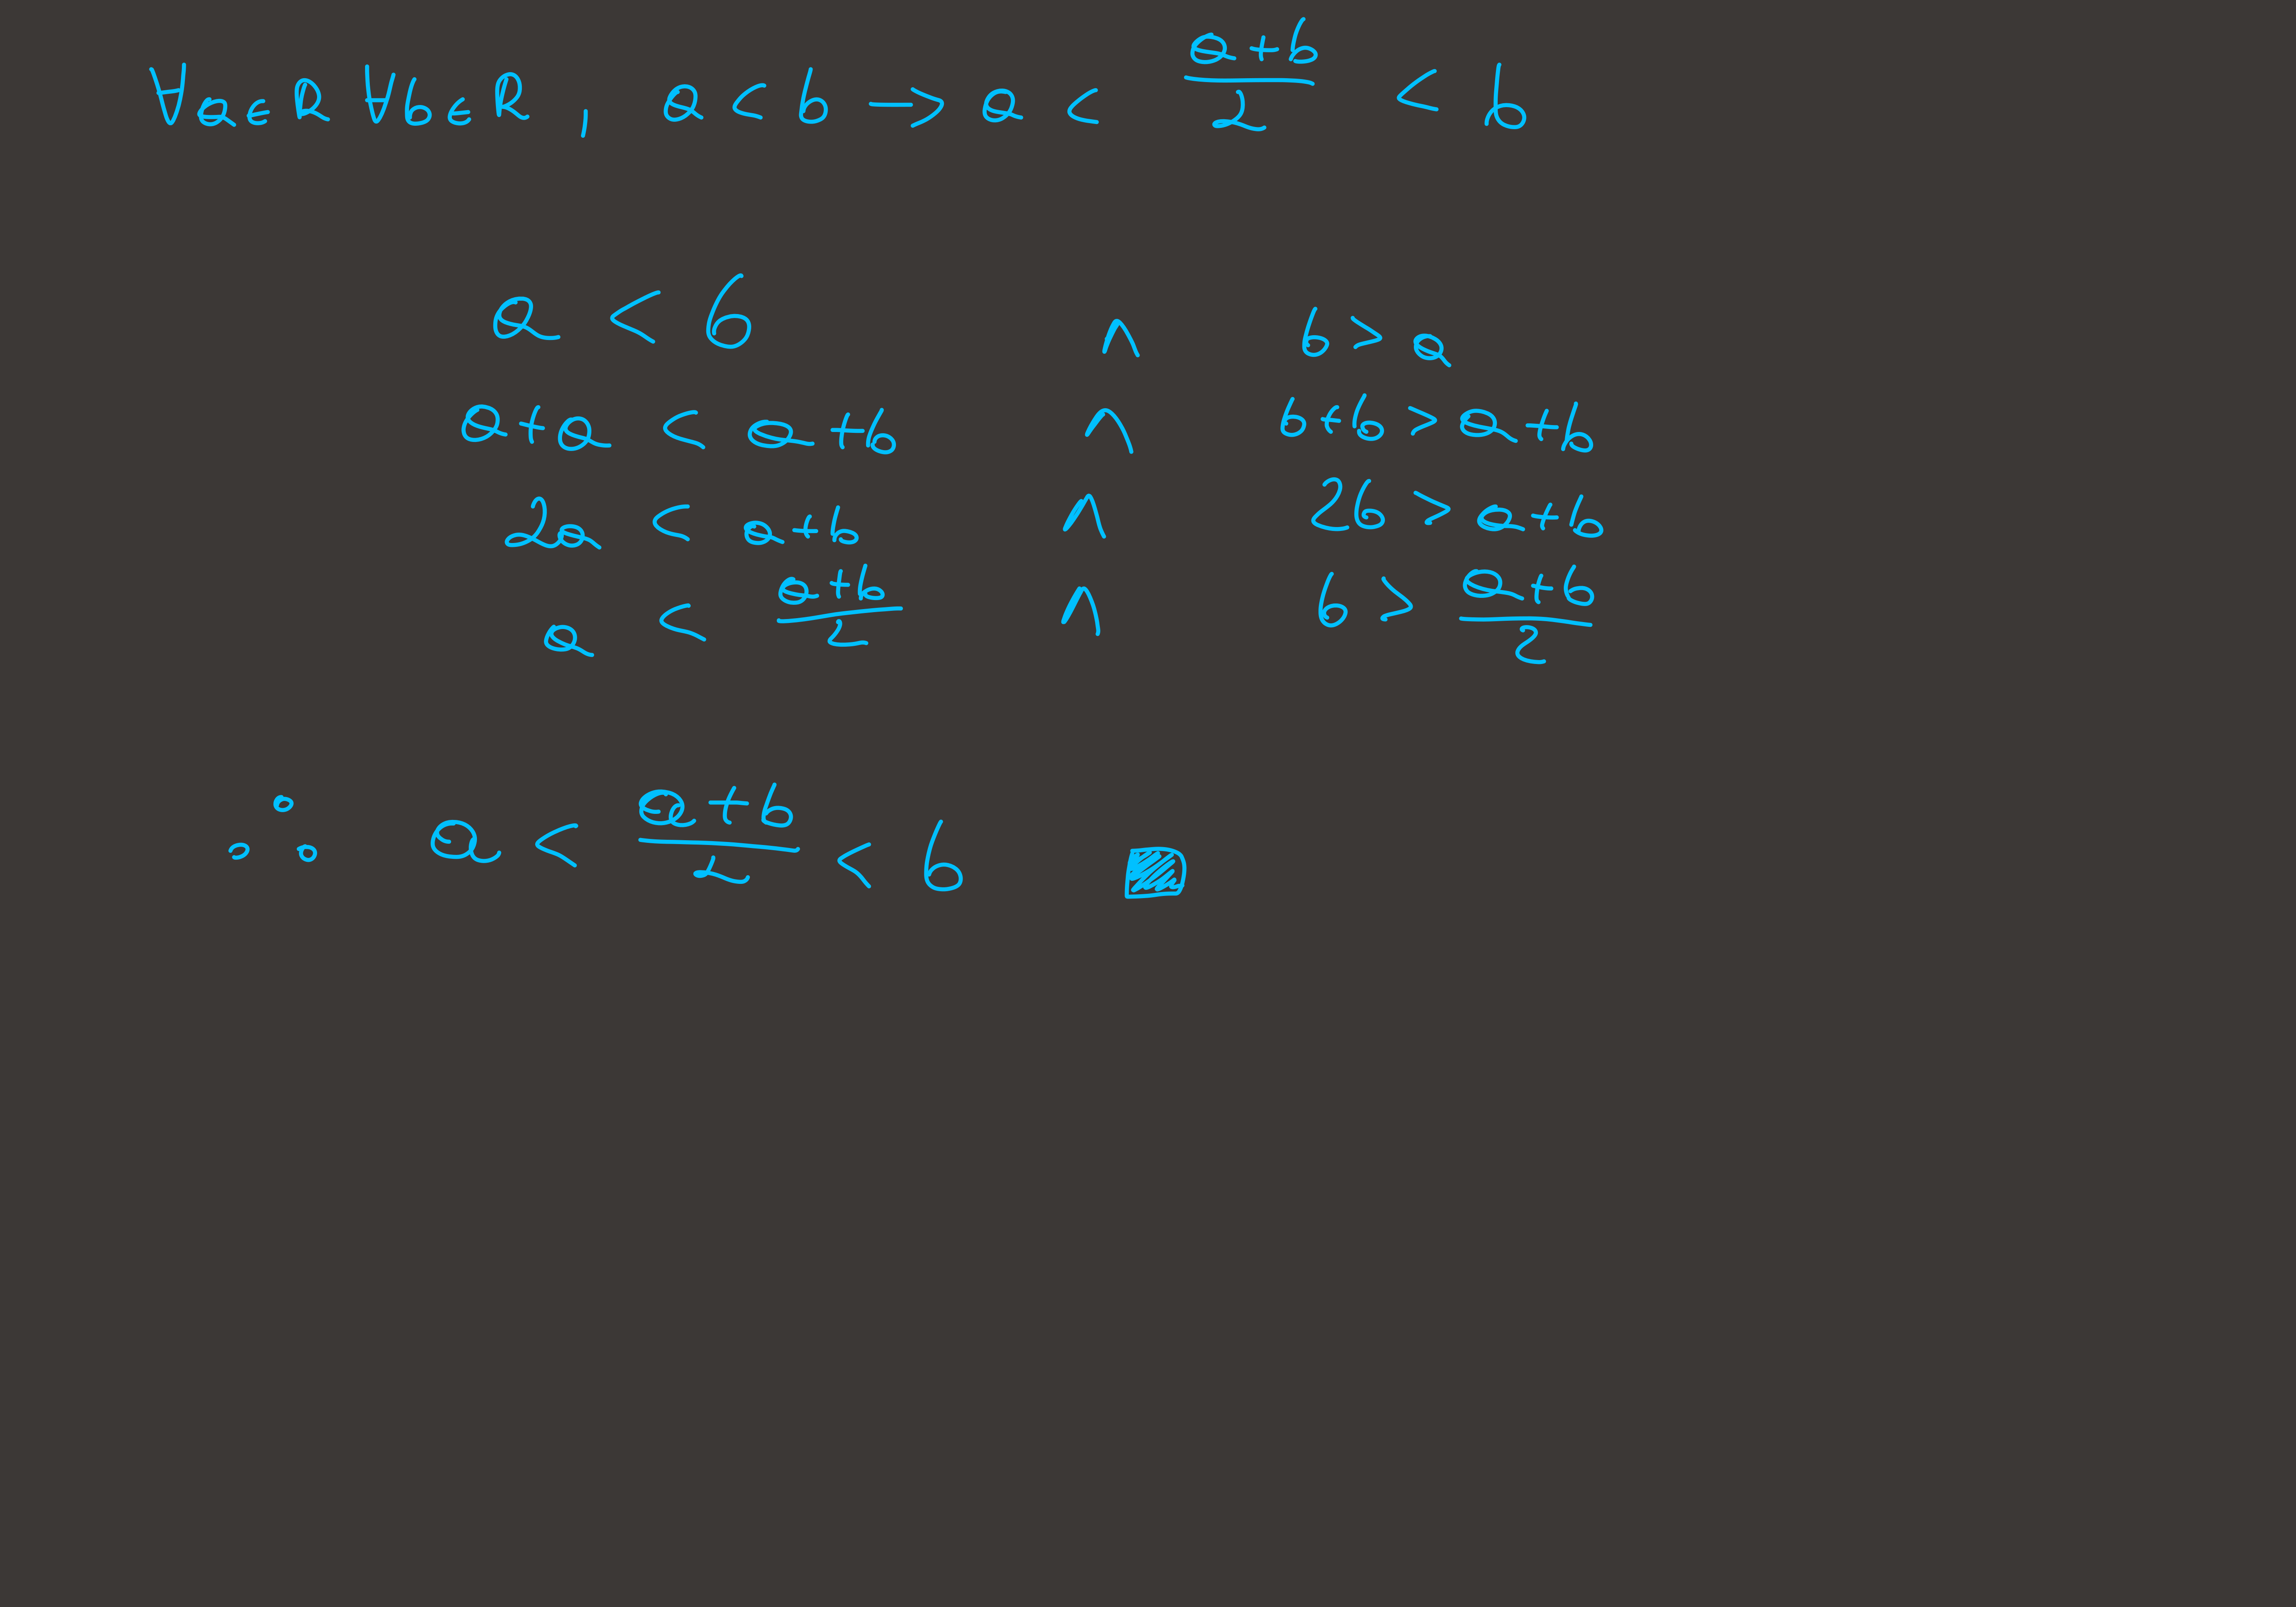 ∀a∈ℝ ∀b∈ℝ, a < b → a < (a+b)/2 < b
a < b ∧ b > a
a+a < a+b ∧ b+b > a+b
2a < a+b ∧ 2b > a+b
a < (a+b)/2 ∧ b > (a+b)/2
∴ a < (a+b)/2 < b ■